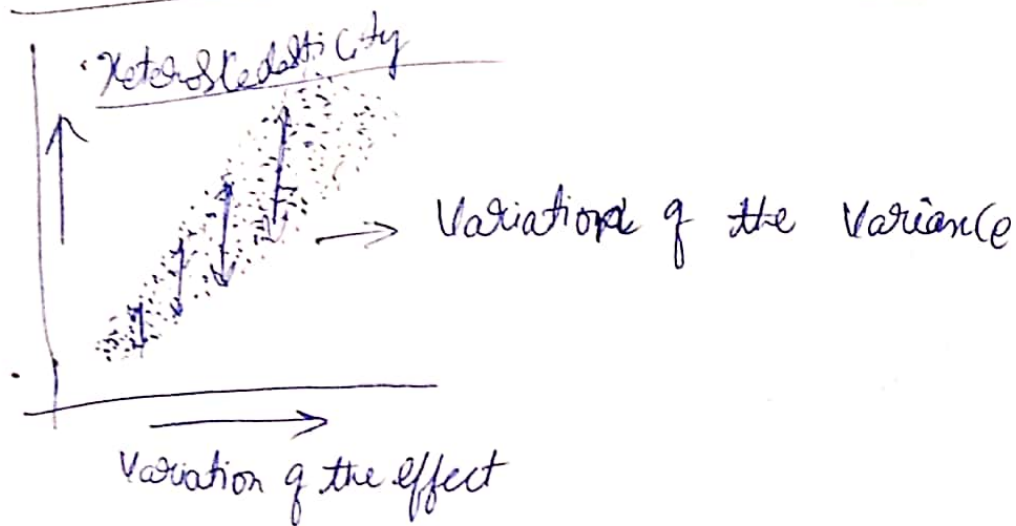 Heteroskedasticity
Variation of the Variance
Variation of the effect